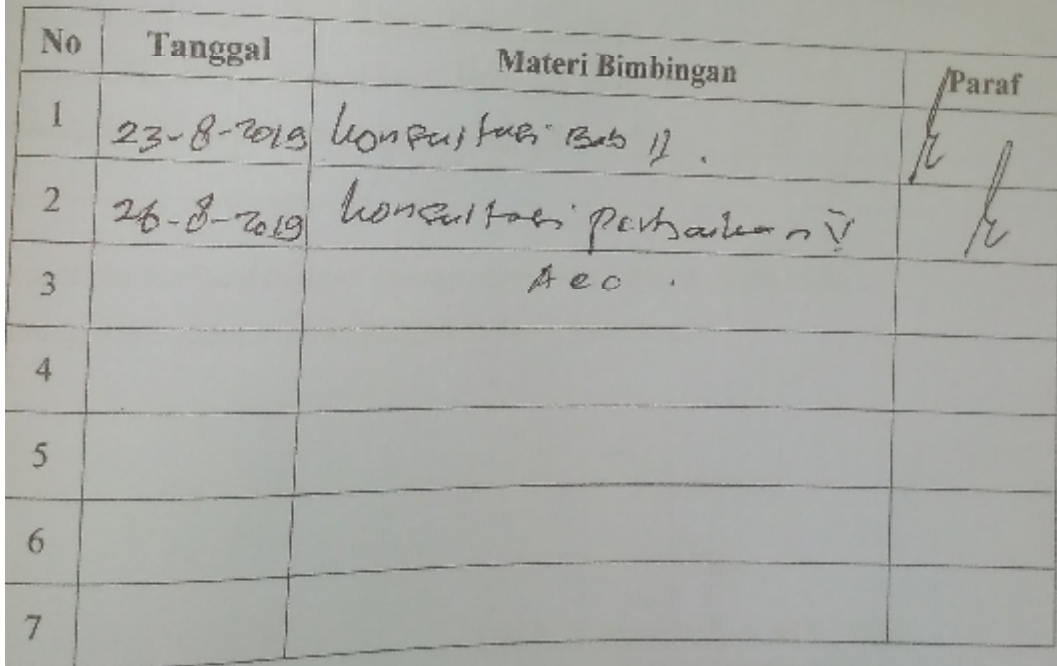 No Tanggal Materi Bimbingan Paraf
1 23-8-2019 Konsultasi Bab II.
2 26-8-2019 Konsultasi perbaikan
3 Acc.
4
5
6
7